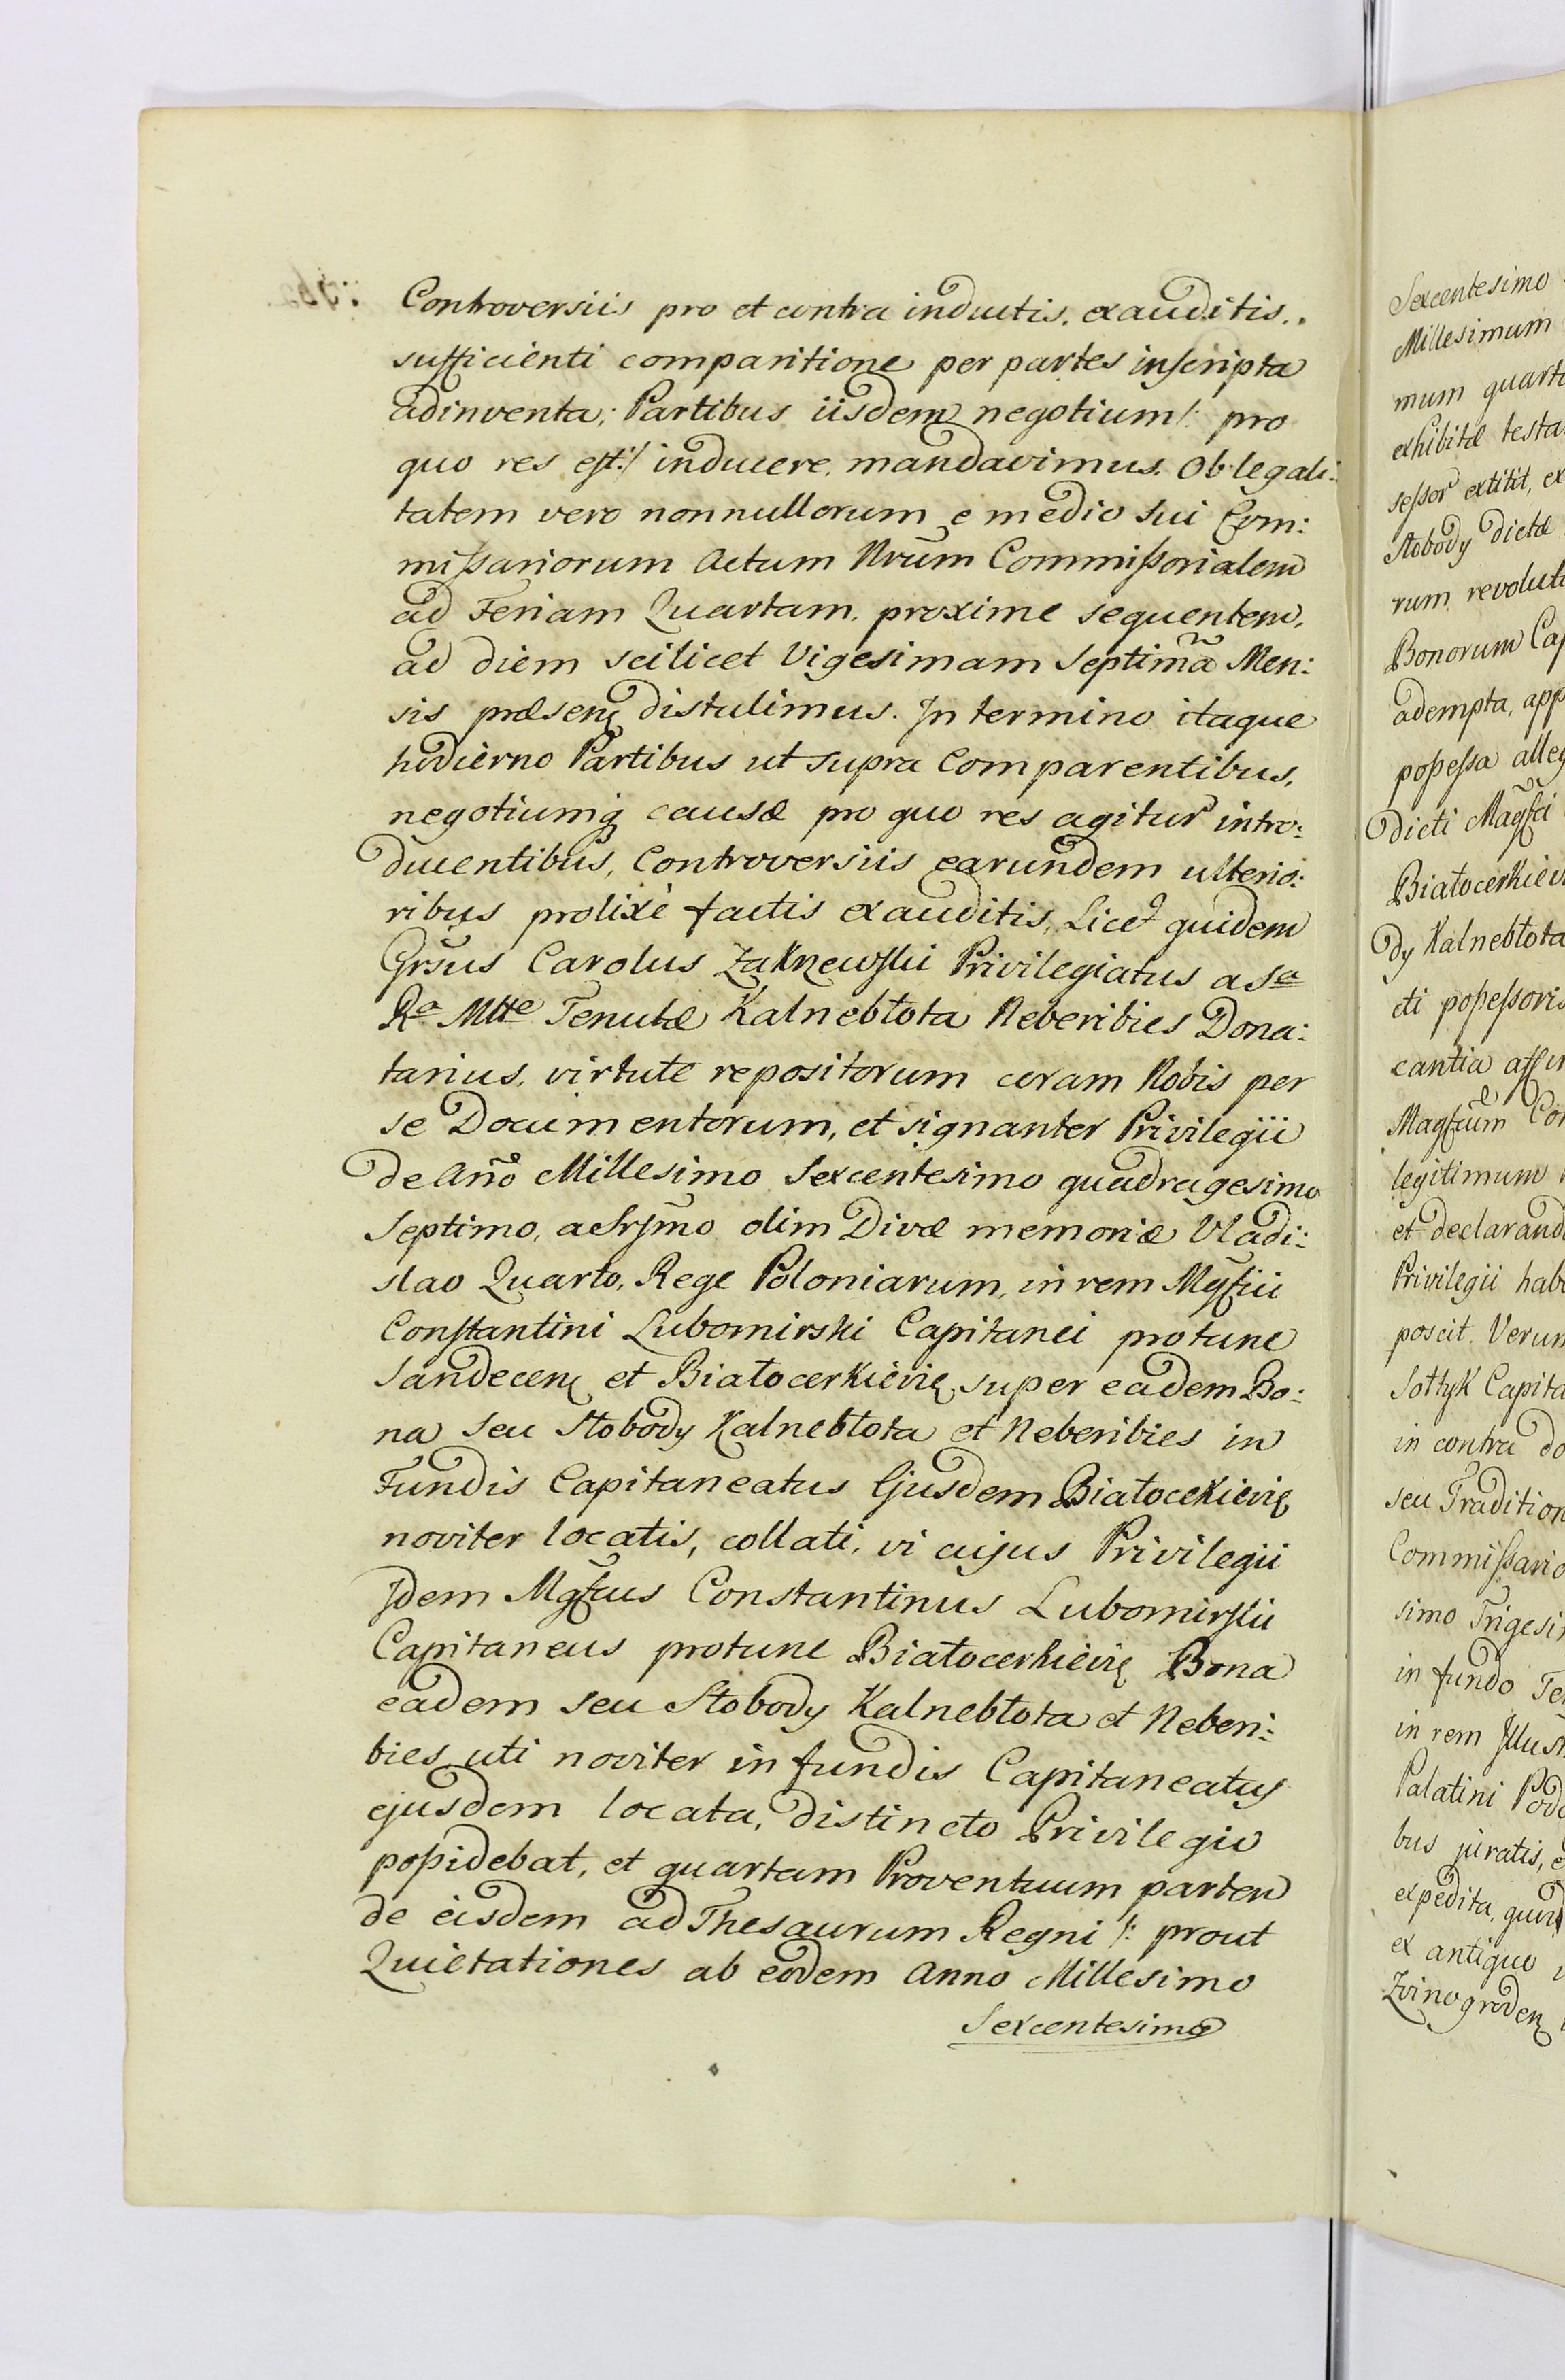 Controversiis pro et contra inductis, exauditis,
sufficienti comparitione per partes inscripta
adinventa; Partibus iisdem negotium /: pro
quo res est :/ inducere, mandavimus. Ob legali:
tatem vero nonnullorum e medio sui Com:
missariorum Actum Nrũm Commissorialem
ad Feriam Quartam proxime sequentem,
ad diem scilicet Vigesimam Septimã Men:
sis præsenę distulimus. In termino itaque
hodierno Partibus ut supra Comparentibus,
negotiumq causæ pro quo res agitur intro:
ducentibus, Controversiis earundem ulterio:
ribus prolixè factis exauditis, Licet quidem
Grsus Carolus Zakrzewski Privilegiatus a Sa
Ra Mtte Tenutæ Kalnebłota Neberibies Dona:
tarius, virtute repositorum coram Nobis per
se Documentorum, et signanter Privilegii
de Anõ Millesimo Sexcentesimo quadragesimo
Septimo, a Srsmo olim Divæ memoriæ Vladi:
slao Quarto, Rege Poloniarum, in rem Mgfcii
Constantini Lubomirski Capitanei protunc
Sandecenę et Białocerkievię super eadem Bo:
na seu Słobody Kalnebłota et Neberibies in
Fundis Capitaneatus Ejusdem Białocekievię
noviter locatis, collati, vi cujus Privilegii
Idem Mgfcus Constantinus Lubomirski
Capitaneus protunc Białocerkievię Bona
eadem seu Słobody Kalnebłota et Neberi:
bies uti noviter in fundis Capitaneatus
ejusdem locata, distincto Privilegio
possidebat, et quartam Proventuum partem
de eisdem ad Thesaurum Regni /: prout
Quietationes ab eodem Anno Millesimo
Sexcentesimo
Sexcentesimo
Millesimum
mum quart
exhibitæ testa
sessor extitit, ex
Słobody dictæ
rum revolut
Bonorum Cap
adempta, app
possessa alleg
dicti Magfci
Białocerkiev
dy Kalnebłota
cti possessoris
cantia assir
Magfcum Con
legitimum
et declarand
Privilegii hab
poscit. Verum
Sołtyk Capita
in contra do
seu Tradition
Commissario
simo Trigesi
in fundo Te
in rem Illust
Palatini Podo
bus juratis, e
expedita, quid
ex antiquo
Zvinogrodenę